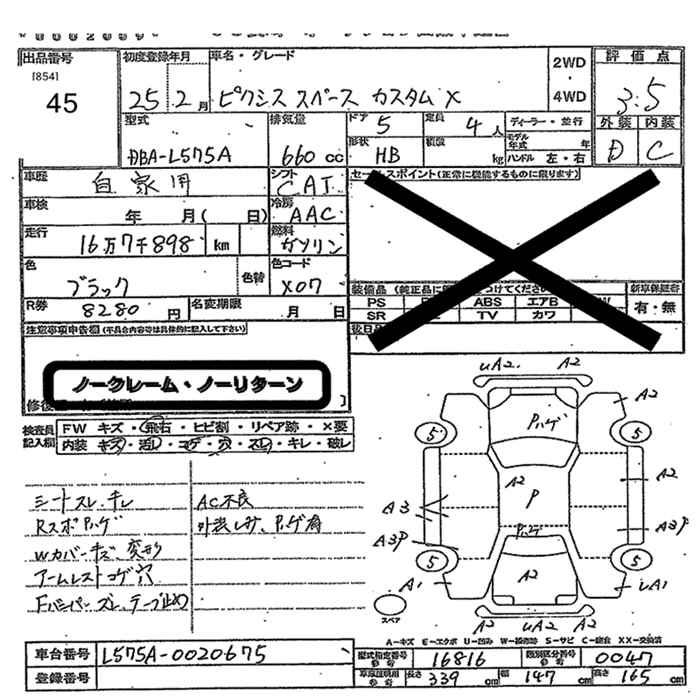 出品番号 初度登録年月 車名・グレード 2WD 4WD 評価点
[854]
45 25年 2月 ピクシス スペース カスタム X 3.5
型式 排気量 ドア 5 定員 4人 ディーラー・並行 外装 内装
DBA-L575A 660cc 形状 HB 積載 kg モデル年式 年 ハンドル 左・右 D C
車歴 自家用 シフト CAT セールスポイント(正常に機能するものに限ります)
車検 年 月( 日) 冷房 AAC
走行 16万7千898 km 燃料 ガソリン
色 ブラック 色替 色コード X07
R券 8280円 名変期限 月 日
装備品 新車保証書
PS ABS エアB W 有・無
SR TV カワ
後日
注意事項申告欄(不具合内容等は具体的に記入して下さい)
ノークレーム・ノーリターン
検査員記入欄 FW キズ・飛石・ヒビ割・リペア跡・×要
内装 キズ・汚し・コゲ・穴・スレ・キレ・破レ
シートスレ、キレ AC不良
RスポPハゲ 外装レサ、Pハゲ有
Wカバーキズ、変形
アームレストコゲ穴
Fバンパーズレ、テープ止め
uA2. A2
Pハゲ A2
5 5
A2 P A2
A3
A3P Pハゲ A3P
5 5
A1 A2 uA1
A2 uA2 A2
スペア
A-キズ E-エクボ U-凹み W-補修跡 S-サビ C-腐食 XX-交換済
車台番号 L575A-0020675 型式指定番号 参考 16816 類別区分番号 参考 0047
登録番号 車庫証明用 参考 長さ 339cm 幅 147cm 高さ 165cm